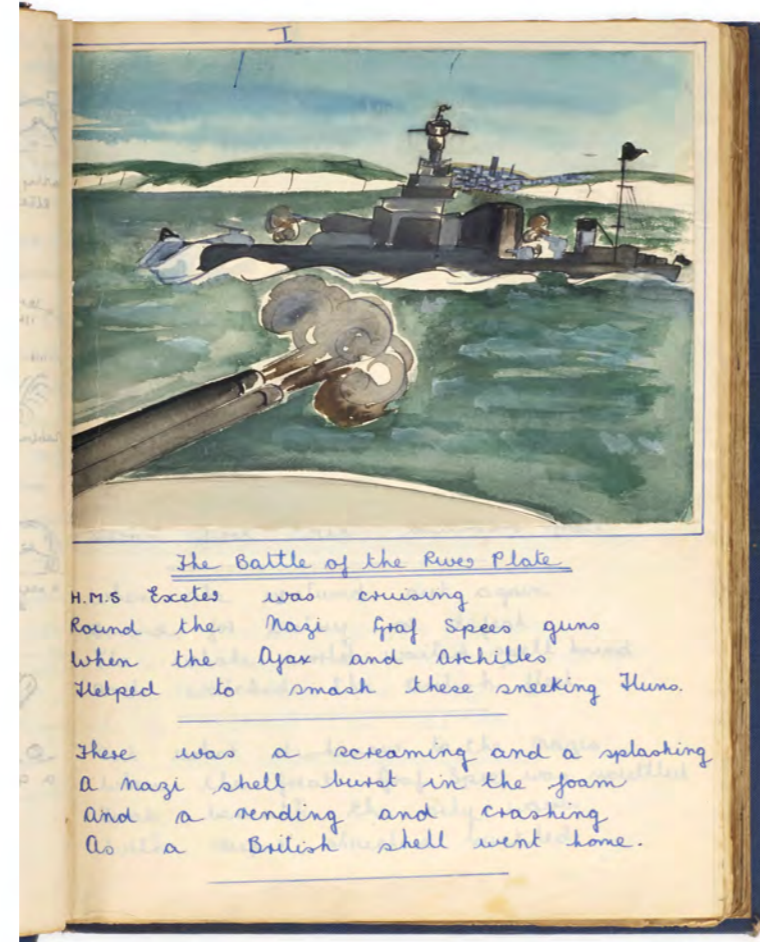 I
The Battle of the River Plate
H.M.S Exeter was cruising
Round the Nazi Graf Spees guns
When the Ajax and Archilles
Helped to smash these sneeking Huns.
There was a screaming and a splashing
A Nazi shell burst in the foam
And a rending and crashing
As a British shell went home.